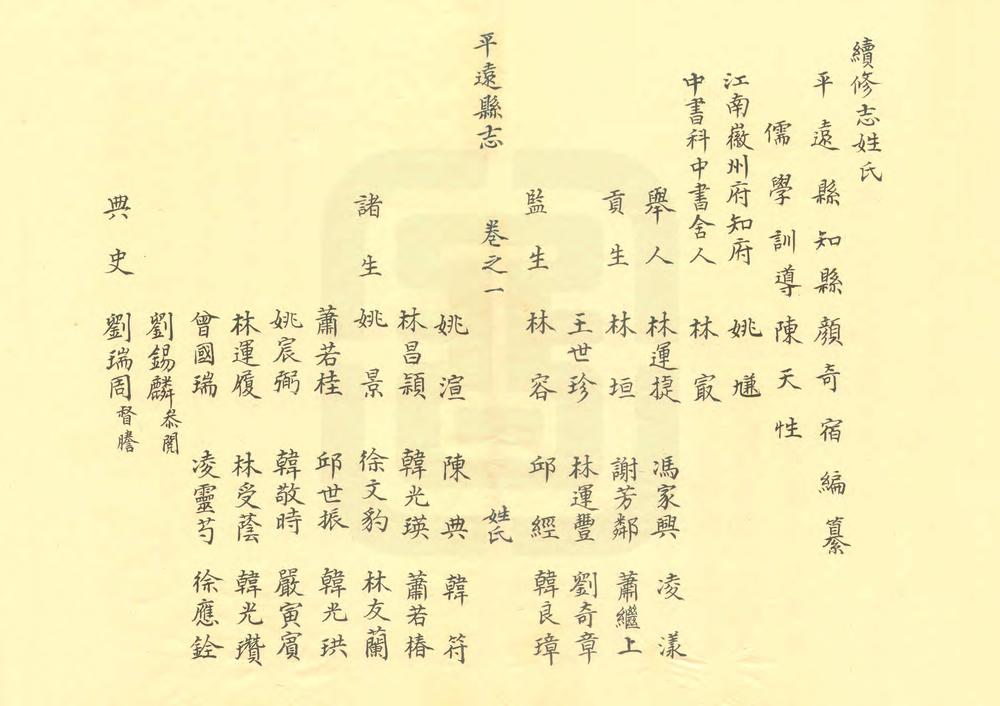 續修志姓氏
平遠縣知縣顏奇宿編纂
儒學訓導陳天性
江南徽州府知府 姚
中書科中書舍人 林㝡
舉人 林運㨗 馮家興 凌漾
貢生 林垣 謝芳鄰 蕭繼上
王世珍 林運豐 劉奇章
監生 林容 邱經 韓良璋
平遠縣志 卷之一 姓氏
姚渲 陳典 韓符
林昌穎 韓光瑛 蕭若椿
諸生 姚景 徐文豹 林友蘭
蕭若桂 邱世振 韓光珙
姚宸弼 韓敬時 嚴寅賓
林運履 林受蔭 韓光瓚
曾國瑞 凌靈芍 徐應銓
劉錫麟叅閱
典史 劉瑞周督謄